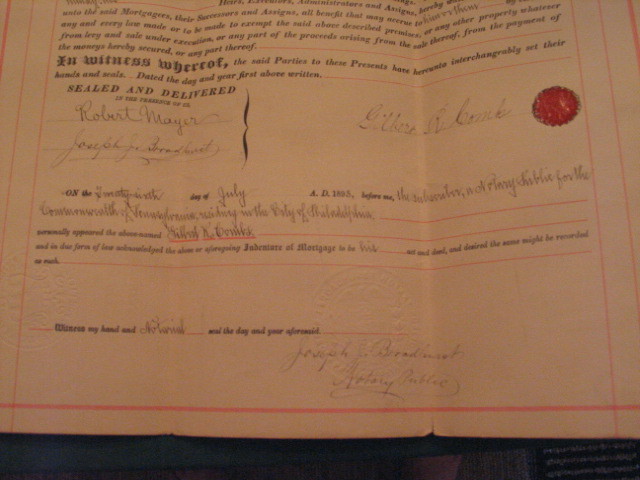 Heirs, Executors, Administrators and Assigns, hereby
unto the said Mortgagees, their Successors and Assigns, all benefit that may accrue to
any and every law made or to be made to exempt the said above described premises, or any other property whatever
from levy and sale under execution, or any part of the proceeds arising from the sale thereof, from the payment of
the moneys hereby secured, or any part thereof.
In witness whereof, the said Parties to these Presents have hereunto interchangeably set their
hands and seals. Dated the day and year first above written.
SEALED AND DELIVERED
IN THE PRESENCE OF US
Robert Mayer
Gilbert R. Combs
Joseph J. Broadhurst
ON the Twenty sixth day of July A. D. 1893, before me, the subscriber, a Notary Public for the
Commonwealth of Pennsylvania, residing in the City of Philadelphia,
personally appeared the above-named Gilbert R. Combs,
and in due form of law acknowledged the above or aforegoing Indenture of Mortgage to be his act and deed, and desired the same might be recorded
as such.
Witness my hand and Notarial seal the day and year aforesaid.
Joseph J. Broadhurst
Notary Public